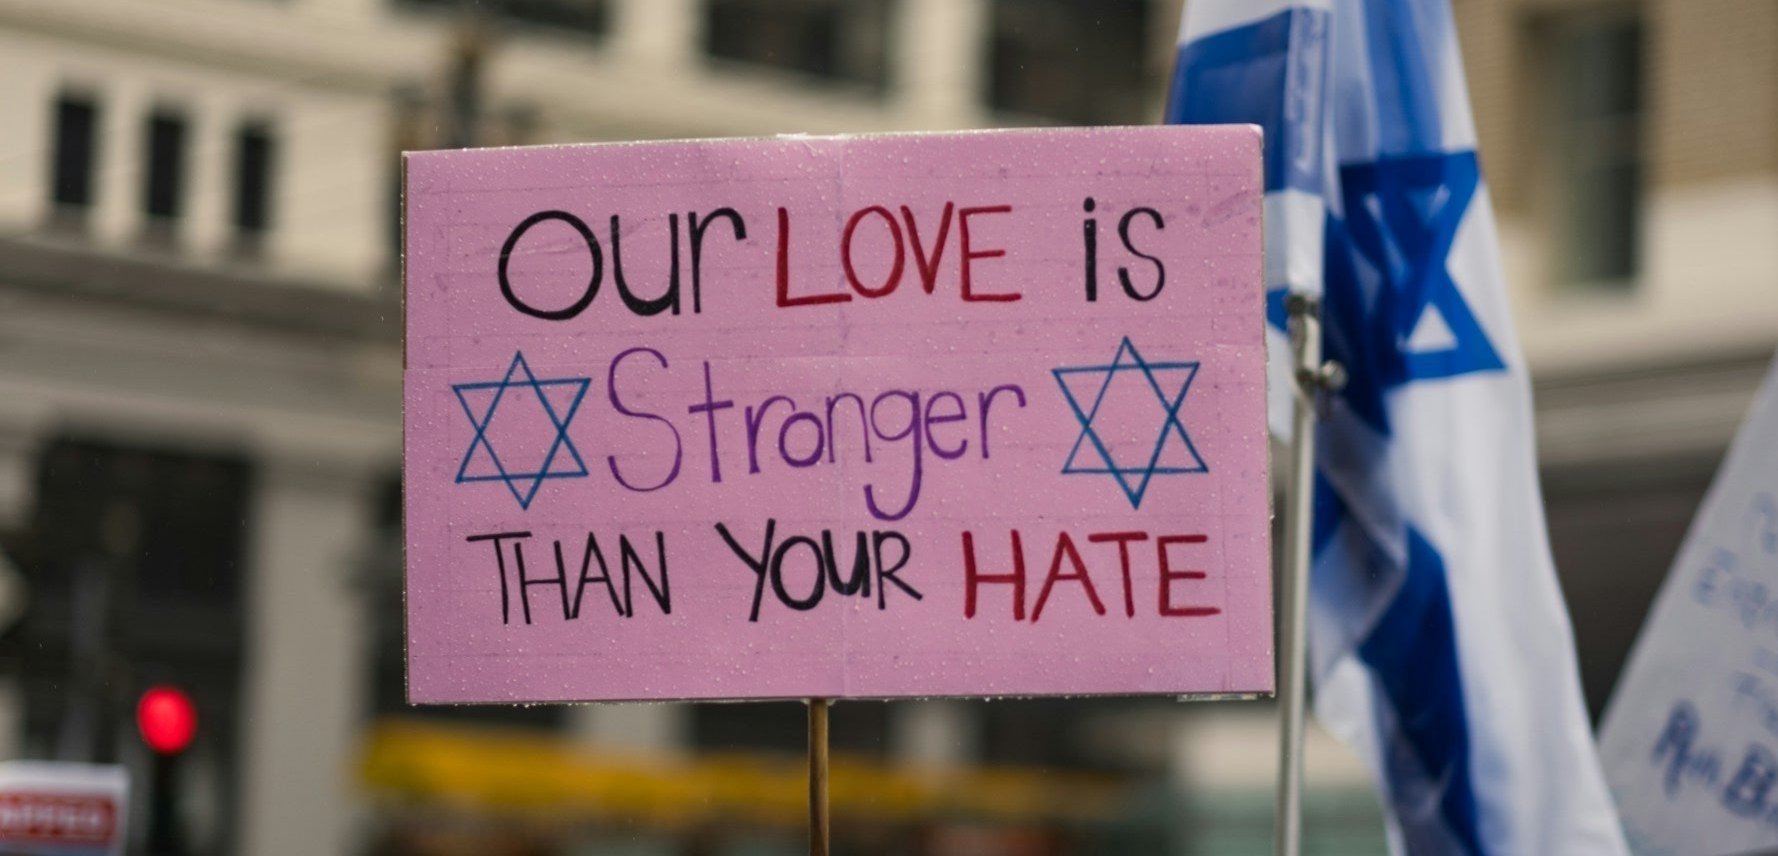 Our LOVE is
Stronger
THAN YOUR HATE